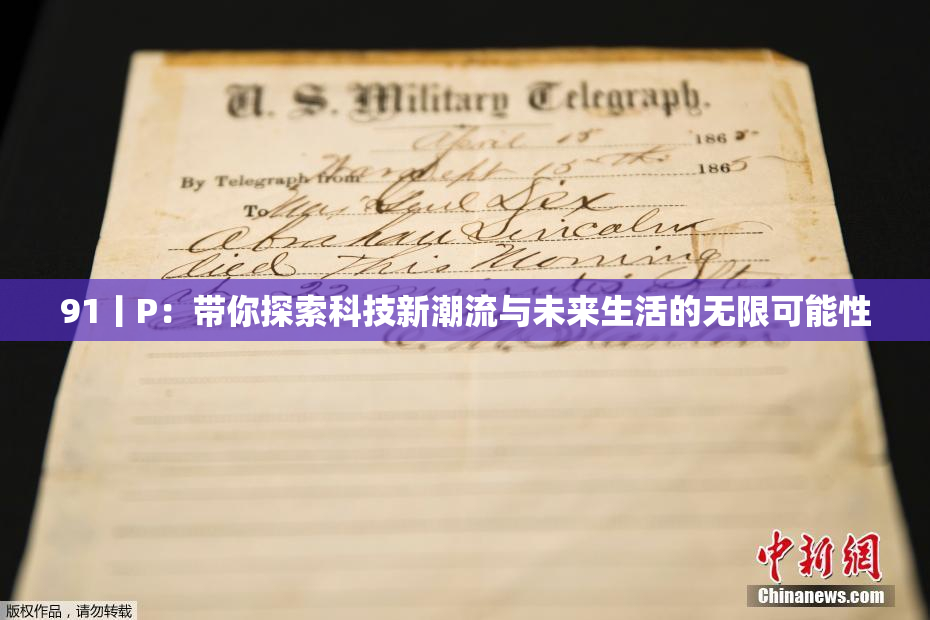 U. S. Military Telegraph.
April 15 1865
By Telegraph from War Dept 15th 1865
To Maj Genl Dix
Abraham Lincoln
died This Morning
22 minutes after
91丨P：带你探索科技新潮流与未来生活的无限可能性
E. M. Stanton
中新網
Chinanews.com
版权作品，请勿转载